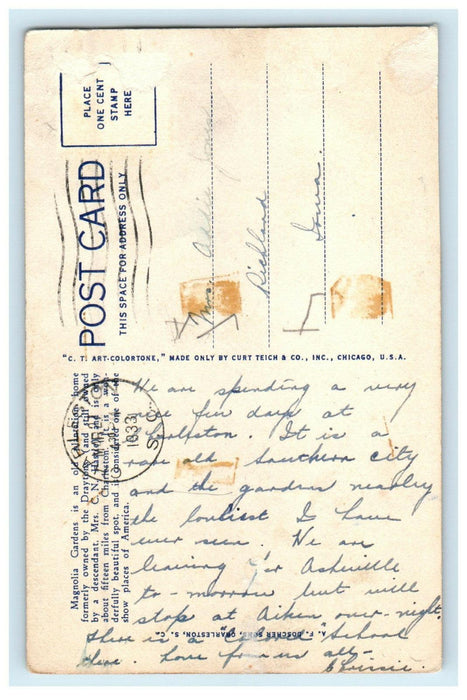 PLACE
ONE CENT
STAMP
HERE
POST CARD
THIS SPACE FOR ADDRESS ONLY
Mrs. Addison
Richland
Iowa.
"C. T. ART-COLORTONE," MADE ONLY BY CURT TEICH & CO., INC., CHICAGO, U.S.A.
Magnolia Gardens is an old plantation home
formerly owned by the Draytons and still owned
by a descendant, Mrs. C. N. Hastie, and is only
about fifteen miles from Charleston. It is a won-
derfully beautiful spot, and is considered one of the
show places of America.
S.C.
We are spending a very
nice few days at
Charleston. It is a
rare old Southern city
and the gardens nearby
the loveliest I have
ever seen. We are
leaving for Asheville
to-morrow but will
stop at Aiken over-night.
There is a "Colored" School
there. Love from us all—
Chrissie.
"A. F. DOSCHER SONS, CHARLESTON, S. C."